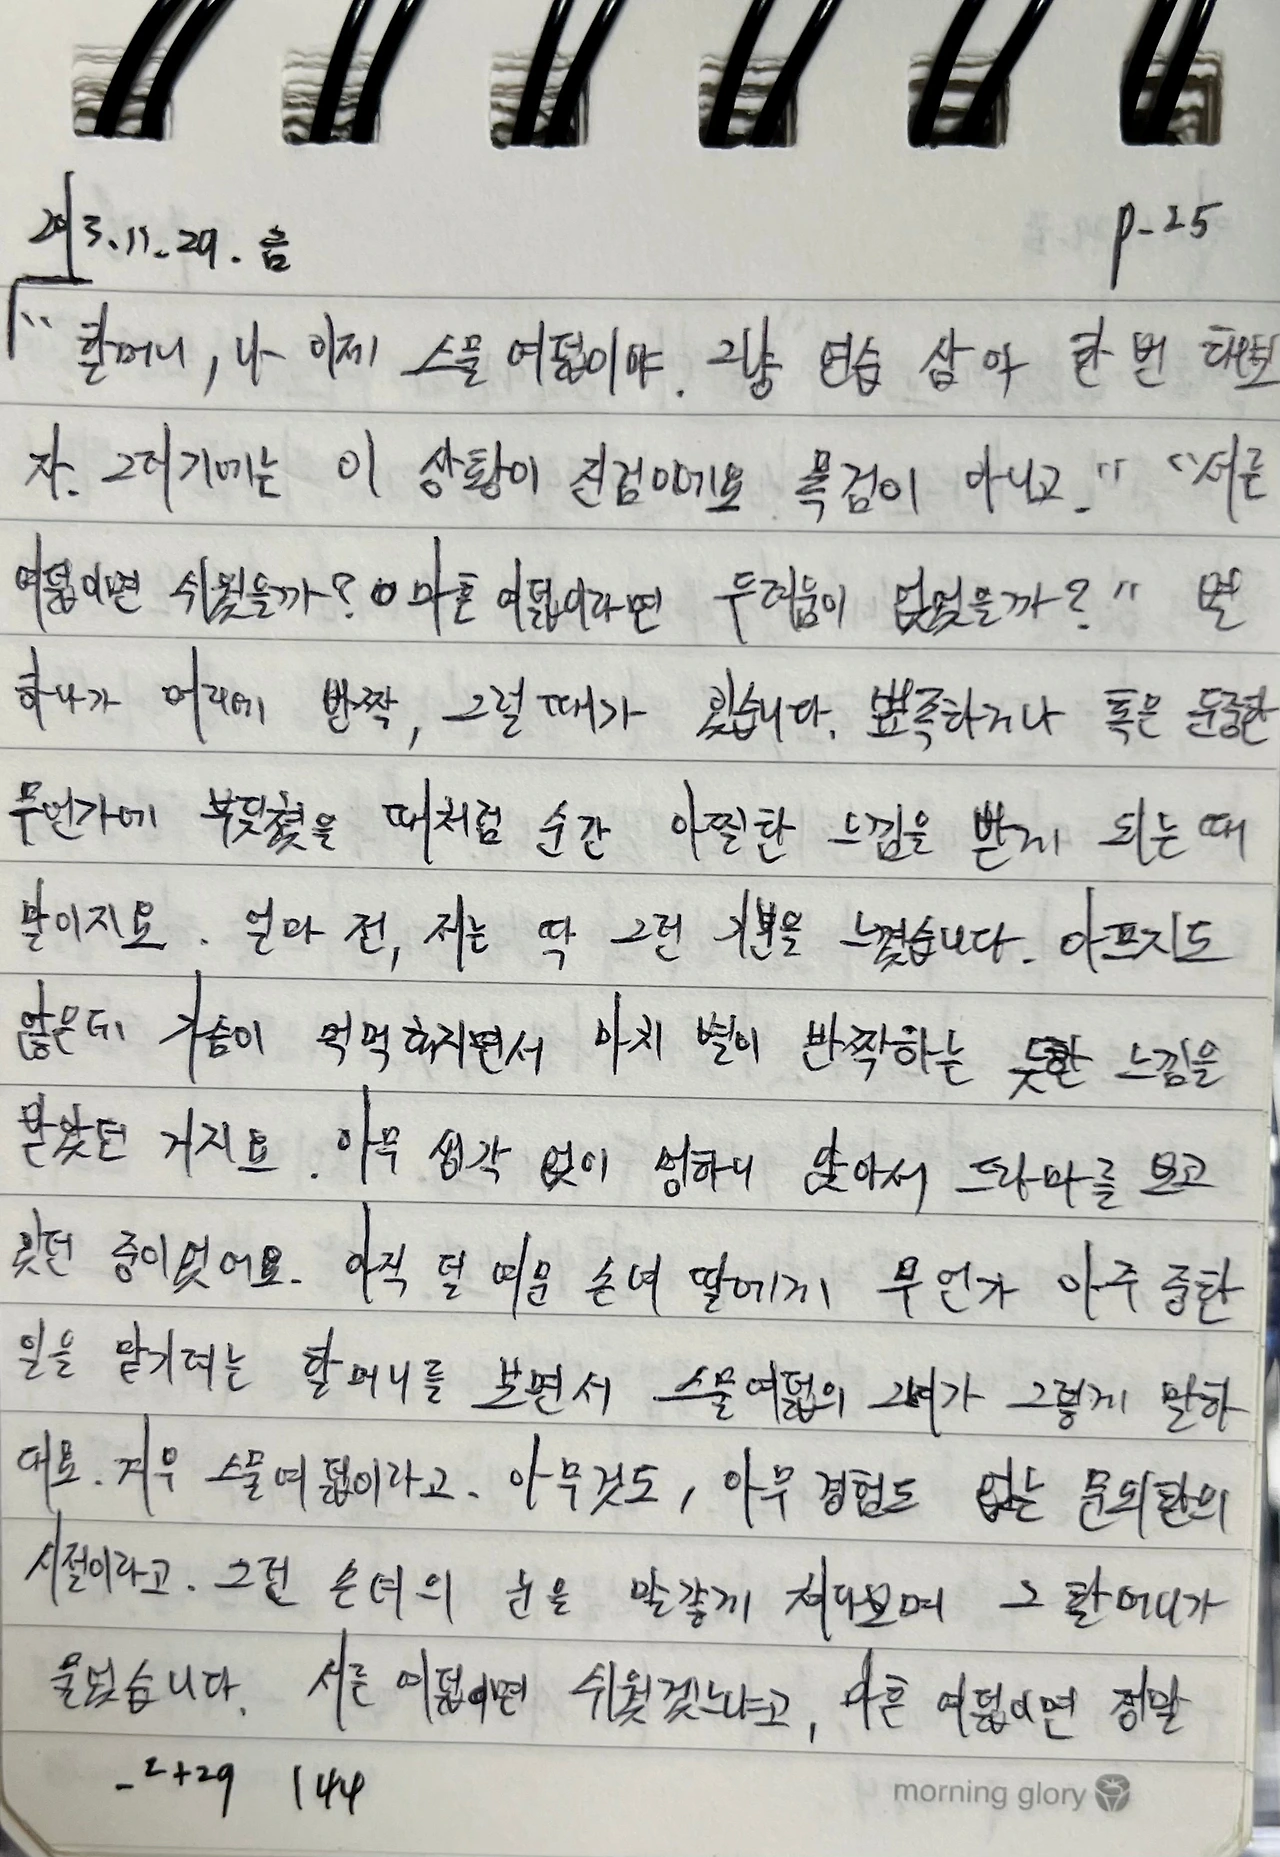 2023.11.29. 흠 p-25
"할머니, 나 이제 스물 여덟이야. 그냥 연습 삼아 한 번 해보
자. 그러기에는 이 상황이 진검이에요 목검이 아니고." "서른
여덟이면 쉬웠을까? 마흔 여덟이라면 두려움이 없었을까?" 별
하나가 머리에 반짝, 그럴 때가 있습니다. 뾰족하거나 혹은 둔중한
무언가에 부딪혔을 때처럼 순간 아찔한 느낌을 받게 되는 때
말이지요. 얼마 전, 저는 딱 그런 기분을 느꼈습니다. 아프지도
않은데 가슴이 먹먹해지면서 마치 별이 반짝하는 듯한 느낌을
받았던 거지요. 아무 생각 없이 멍하니 앉아서 드라마를 보고
있던 중이었어요. 아직 덜 여문 손녀 딸에게 무언가 아주 중한
일을 맡기려는 할머니를 보면서 스물여덟의 그녀가 그렇게 말하
대요. 겨우 스물여덟이라고. 아무것도, 아무 경험도 없는 문외한의
시절이라고. 그런 손녀의 눈을 말갛게 쳐다보며 그 할머니가
물었습니다. 서른 여덟이면 쉬웠겠느냐고, 마흔 여덟이면 정말
144
morning glory